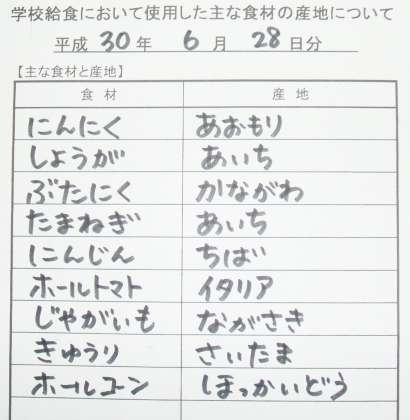 学校給食において使用した主な食材の産地について
平成 30 年 6 月 28 日分
【主な食材と産地】
食材 産地
にんにく あおもり
しょうが あいち
ぶたにく かながわ
たまねぎ あいち
にんじん ちばい
ホールトマト イタリア
じゃがいも ながさき
きゅうり さいたま
ホールコーン ほっかいどう